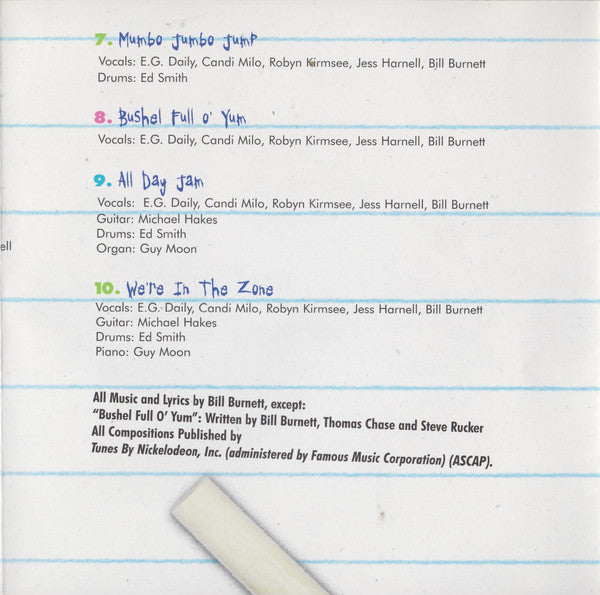 7. Mumbo Jumbo Jump
Vocals: E.G. Daily, Candi Milo, Robyn Kirmsee, Jess Harnell, Bill Burnett
Drums: Ed Smith
8. Bushel Full o' Yum
Vocals: E.G. Daily, Candi Milo, Robyn Kirmsee, Jess Harnell, Bill Burnett
9. All Day Jam
Vocals: E.G. Daily, Candi Milo, Robyn Kirmsee, Jess Harnell, Bill Burnett
Guitar: Michael Hakes
Drums: Ed Smith
Organ: Guy Moon
ell
10. We're In The Zone
Vocals: E.G. Daily, Candi Milo, Robyn Kirmsee, Jess Harnell, Bill Burnett
Guitar: Michael Hakes
Drums: Ed Smith
Piano: Guy Moon
All Music and Lyrics by Bill Burnett, except:
“Bushel Full O’ Yum”: Written by Bill Burnett, Thomas Chase and Steve Rucker
All Compositions Published by
Tunes By Nickelodeon, Inc. (administered by Famous Music Corporation) (ASCAP).